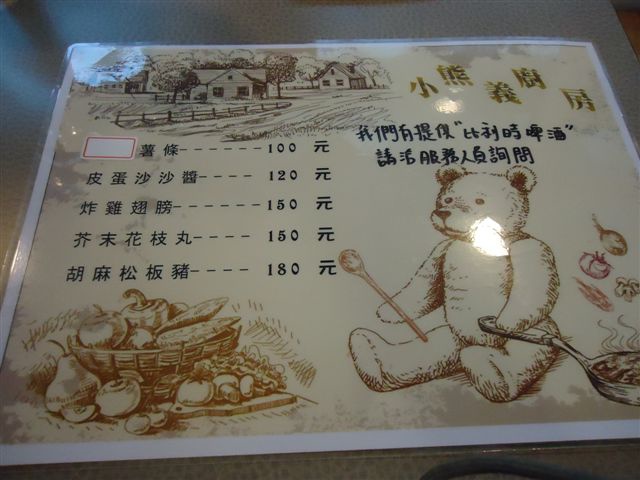 小熊義廚房
我們有提供"比利時啤酒"
請洽服務人員詢問
薯條------- 100 元
皮蛋沙沙醬---- 120 元
炸雞翅膀----- 150 元
芥末花枝丸---- 150 元
胡麻松板豬---- 180 元